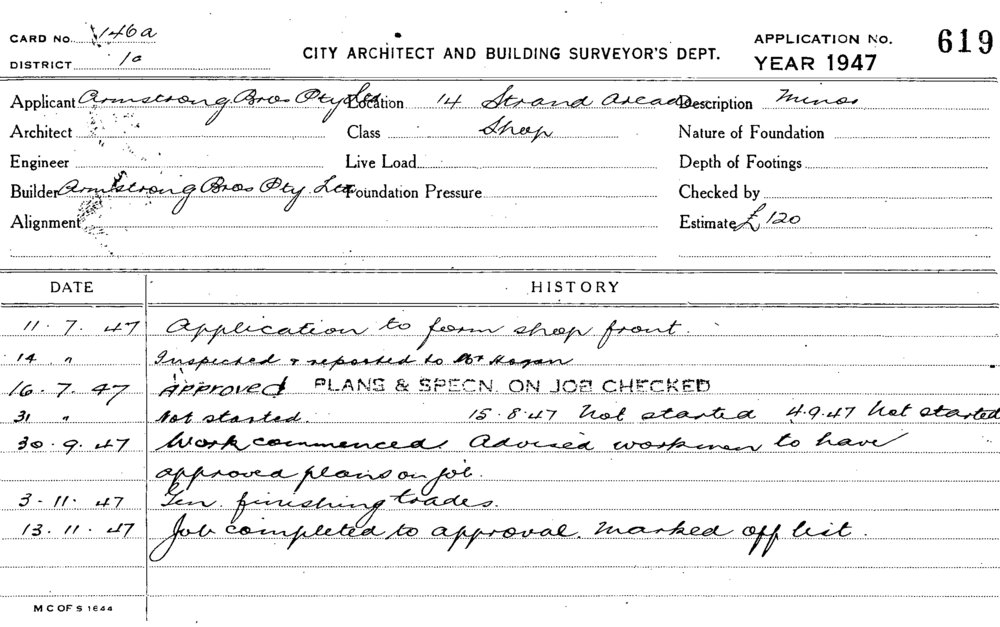 CARD No. 146a
CITY ARCHITECT AND BUILDING SURVEYOR'S DEPT.
APPLICATION No. 619
DISTRICT 1a
YEAR 1947
Applicant Armstrong Bros Pty Ltd Location 14 Strand Arcade Description Minor
Architect Class Shop Nature of Foundation
Engineer Live Load Depth of Footings
Builder Armstrong Bros Pty. Ltd Foundation Pressure Checked by
Alignment Estimate £120
DATE HISTORY
11. 7. 47 Application to form shop front.
14 " Inspected & reported to Mr Hogan
16. 7. 47 APPROVED PLANS & SPECN. ON JOB CHECKED
31 " Not started. 15.8.47 Not started 4.9.47 Not started
30. 9. 47 Work commenced. Advised workmen to have
approved plans on job.
3. 11. 47 Gen. finishing trades.
13. 11. 47 Job completed to approval. Marked off list.
M C OF S 1644